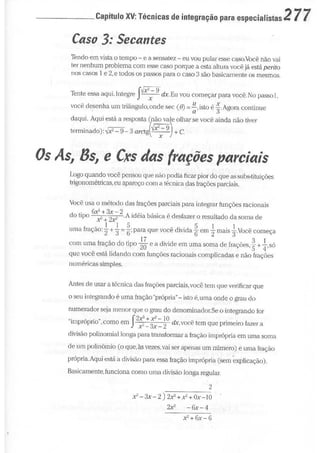 Capítulo XV: Técnicas de integração para especialistas 277
Caso 3: Secantes
Tendo em vista o tempo – e a sensatez – eu vou pular esse caso. Você não vai
ter nenhum problema com esse caso porque a esta altura você já está perito
nos casos 1 e 2, e todos os passos para o caso 3 são basicamente os mesmos.
Tente essa aqui. Integre ∫ √(x² – 9) / x dx. Eu vou começar para você. No passo 1,
você desenha um triângulo, onde sec (θ) = u/a, isto é x/3. Agora continue
daqui. Aqui está a resposta (não vale olhar se você ainda não tiver
terminado): √(x² – 9) – 3 arctg(√(x² – 9) / x) + C.
Os As, Bs, e Cxs das frações parciais
Logo quando você pensou que não podia ficar pior do que as substituições
trigonométricas, eu apareço com a técnica das frações parciais.
Você usa o método das frações parciais para integrar funções racionais
do tipo (6x² + 3x – 2) / (x³ + 2x²). A idéia básica é desfazer o resultado da soma de
uma fração: 1/2 + 1/3 = 5/6; para que você divida 5/6 em 1/2 mais 1/3. Você começa
com uma fração do tipo 17/20 e a divide em uma soma de frações, 3/5 + 1/4, só
que você está lidando com funções racionais complicadas e não frações
numéricas simples.
Antes de usar a técnica das frações parciais, você tem que verificar que
o seu integrando é uma fração "própria" – isto é, uma onde o grau do
numerador seja menor que o grau do denominador. Se o integrando for
"impróprio", como em ∫ (2x³ + x² – 10) / (x² – 3x – 2) dx, você tem que primeiro fazer a
divisão polinomial longa para transformar a fração imprópria em uma soma
de um polinômio (o que, às vezes, vai ser apenas um número) e uma fração
própria. Aqui está a divisão para essa fração imprópria (sem explicação).
Basicamente, funciona como uma divisão longa regular.
2
x³ – 3x – 2 ) 2x³ + x² + 0x –10
2x³ – 6x – 4
x² + 6x – 6